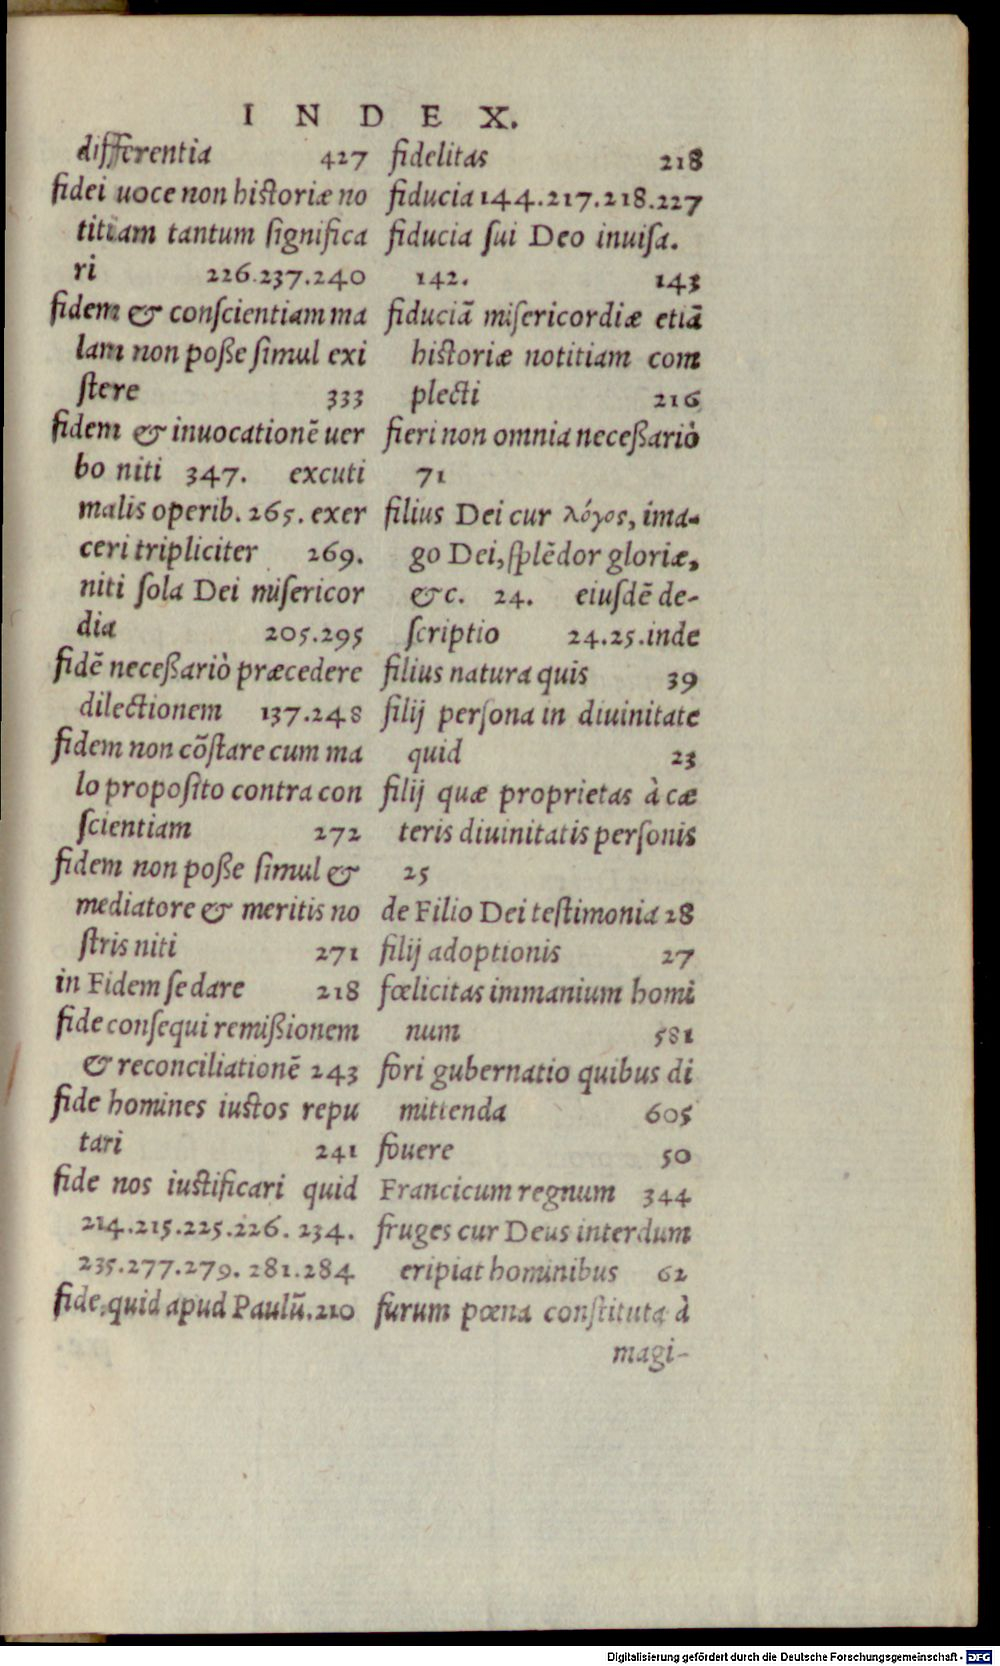 INDEX.
differentia 427
fidei uoce non historiæ no
titiam tantum significa
ri 226.237.240
fidem & conſcientiam ma
lam non poſſe ſimul exi
ſtere 333
fidem & inuocationẽ uer
bo niti 347. excuti
malis operib. 265. exer
ceri tripliciter 269.
niti ſola Dei miſericor
dia 205.295
fidẽ neceſſariò præcedere
dilectionem 137.248
fidem non cõſtare cum ma
lo propoſito contra con
ſcientiam 272
fidem non poſſe ſimul &
mediatore & meritis no
ſtris niti 271
in Fidem ſe dare 218
fide conſequi remiſſionem
& reconciliationẽ 243
fide homines iuſtos repu
tari 241
fide nos iuſtificari quid
214.215.225.226. 234.
235.277.279. 281.284
fide, quid apud Paulũ. 210
fidelitas 218
fiducia 144.217.218.227
fiducia ſui Deo inuiſa.
142. 143
fiduciã miſericordiæ etiã
hiſtoriæ notitiam com
plecti 216
fieri non omnia neceſſariò
71
filius Dei cur λόγος, ima-
go Dei, ſplẽdor gloriæ,
&c. 24. eiuſdẽ de-
ſcriptio 24.25.inde
filius natura quis 39
filij perſona in diuinitate
quid 23
filij quæ proprietas à cæ
teris diuinitatis perſonis
25
de Filio Dei teſtimonia 28
filij adoptionis 27
fœlicitas immanium homi
num 581
fori gubernatio quibus di
mittenda 605
fouere 50
Francicum regnum 344
fruges cur Deus interdum
eripiat hominibus 62
furum pœna conſtituta à
magi-
Digitalisierung gefördert durch die Deutsche Forschungsgemeinschaft - DFG